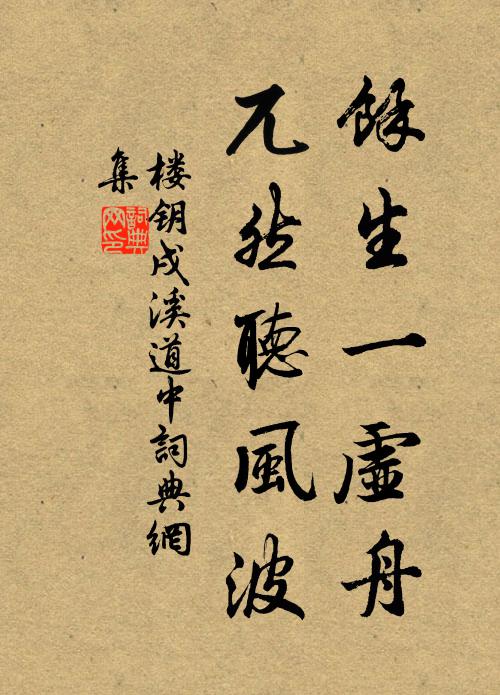 餘生一虛舟
兀然聽風波
楼钥戍溪道中詞典網
集
詞典
网印